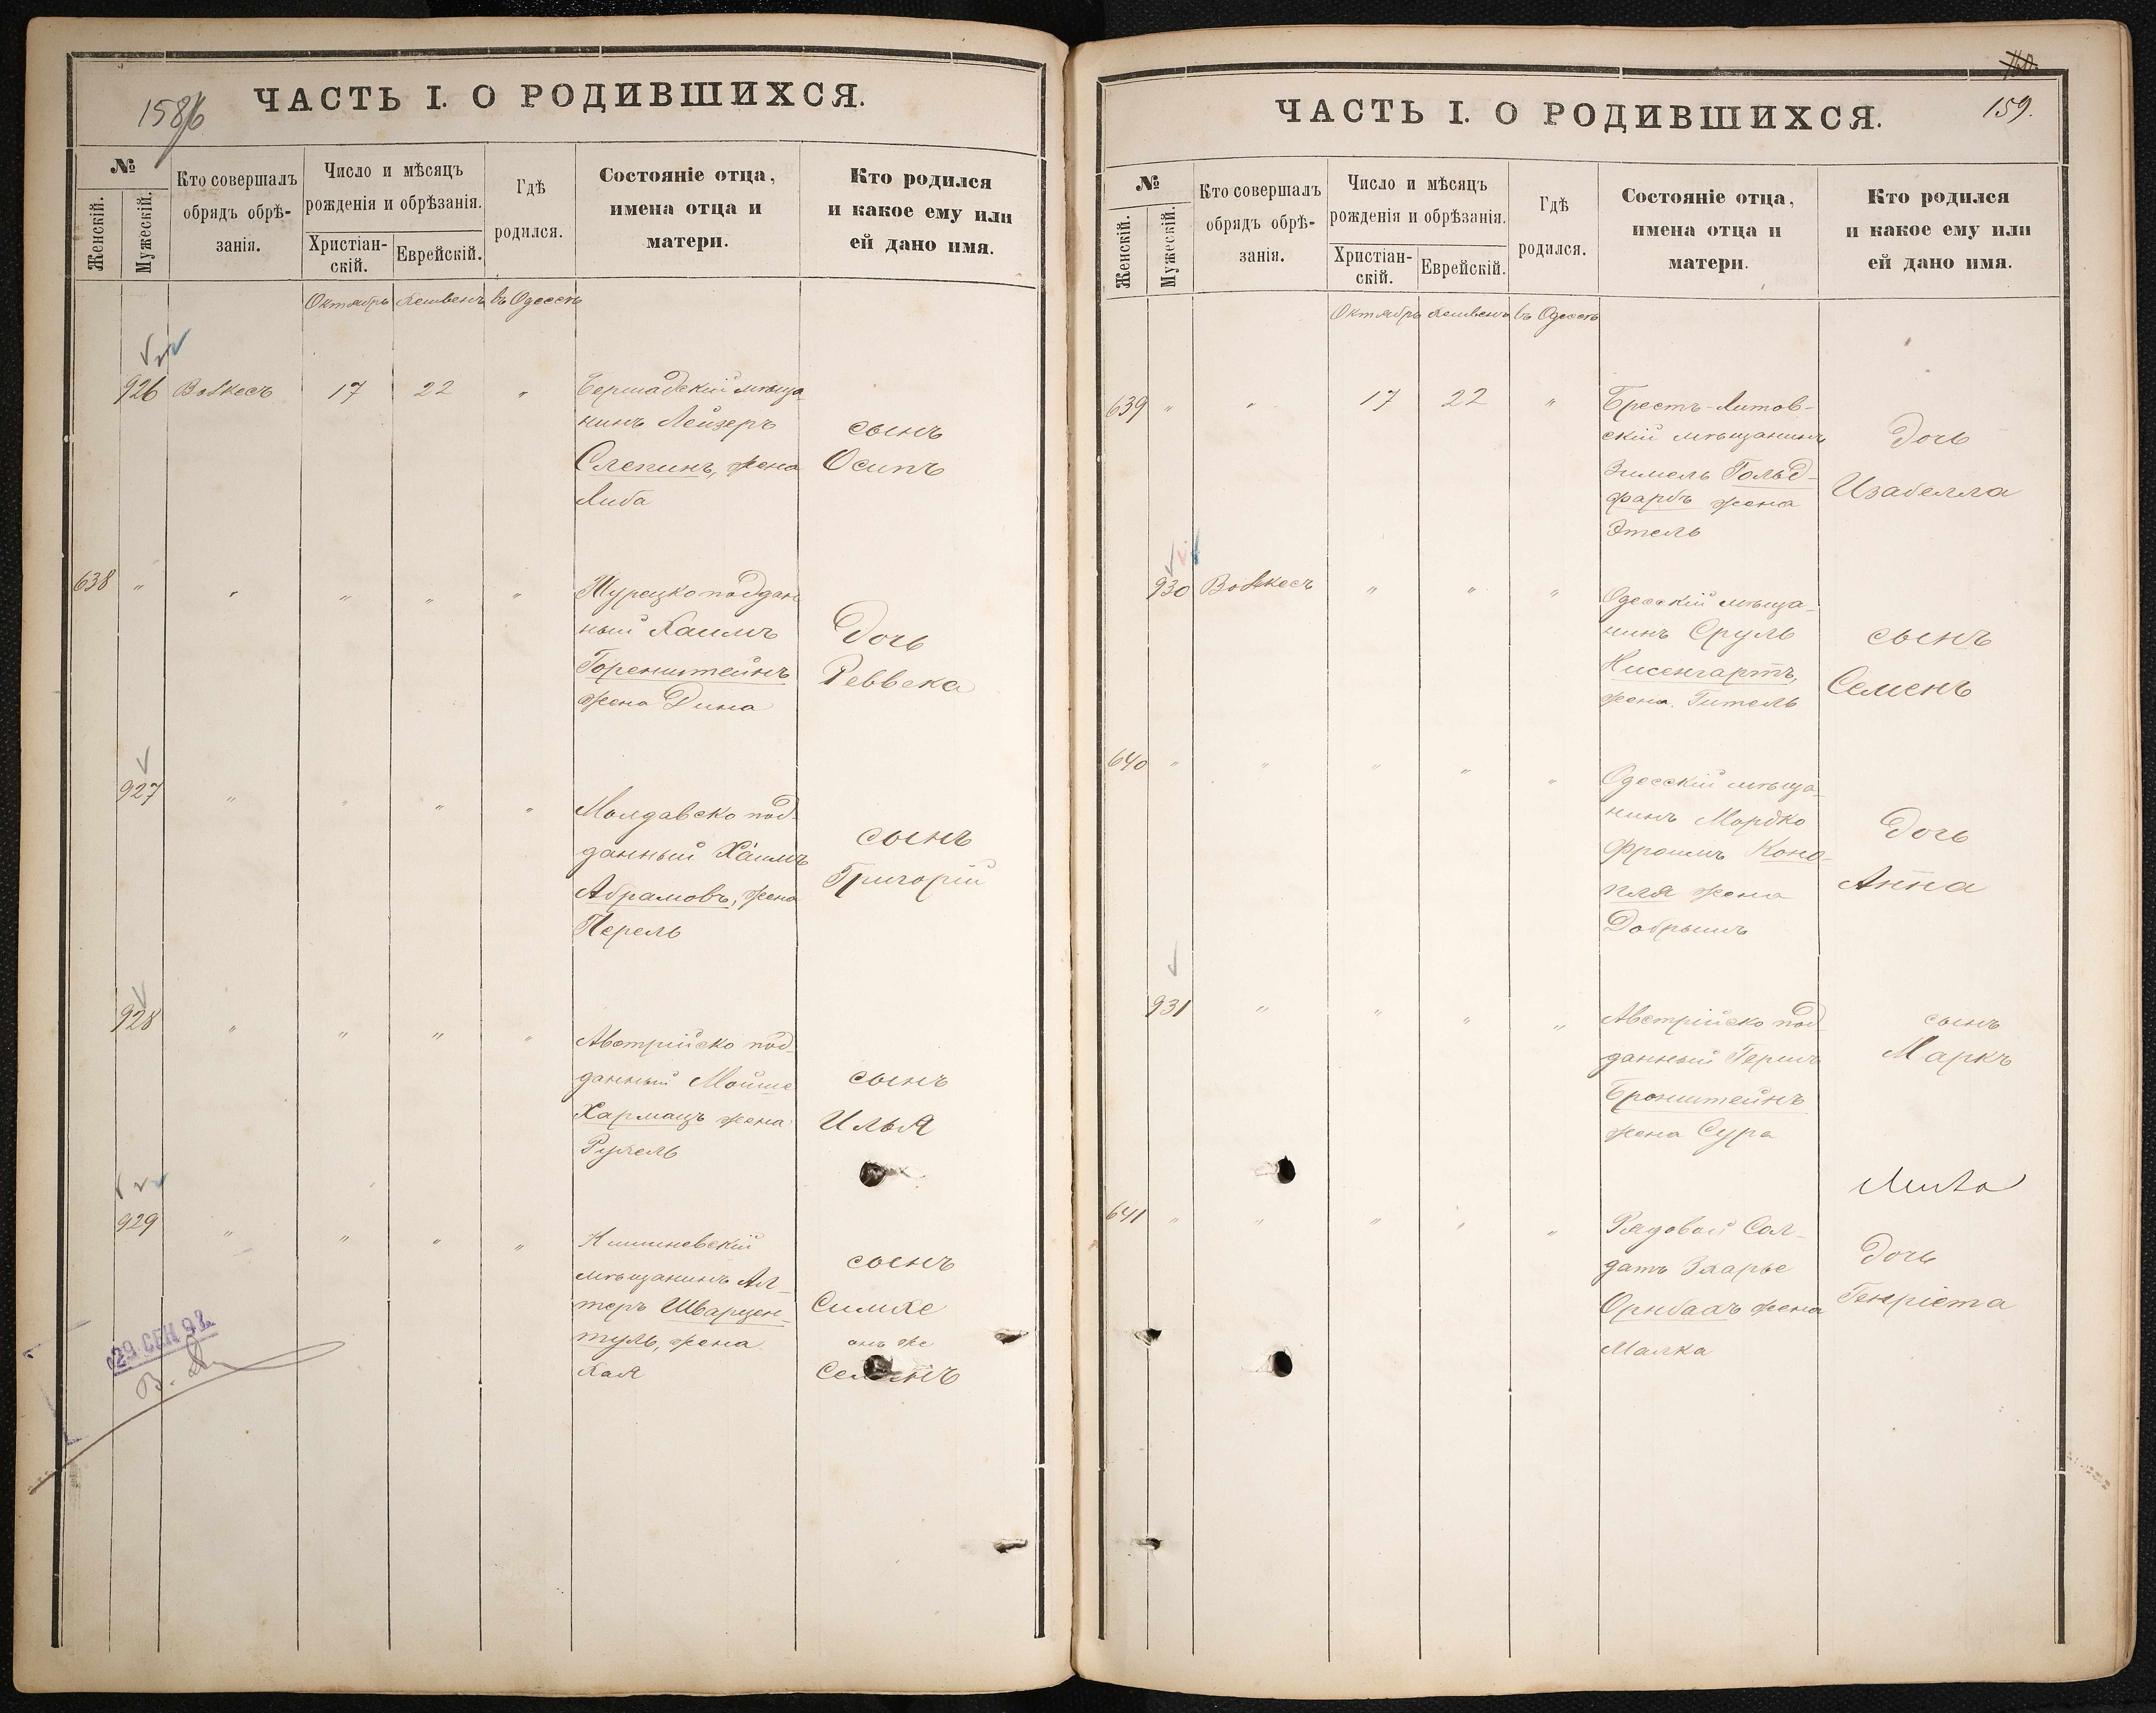 158/б
ЧАСТЬ I. О РОДИВШИХСЯ.
№
Женскій.
Мужескій.
Кто совершалъ
обрядъ обрѣ-
занія.
Число и мѣсяцъ
рожденія и обрѣзанія.
Христіан-
скій.
Еврейскій.
Гдѣ
родился.
Состояніе отца,
имена отца и
матери.
Кто родился
и какое ему или
ей дано имя.
Октябрь Хешвенъ въ Одессѣ
926 17 22 " Бершадскій мѣща
нинъ Лейзеръ
Слепинъ, жена
Либа
сынъ
Осипъ
638 " " " " " Турецкоподдан
ный Хаимъ
Горенштейнъ
жена Дина
Дочь
Реввека
927 " " " " Молдавско под-
данный Хаимъ
Абрамовъ, жена
Перель
сынъ
Григорій
928 " " " " Австрійско под-
данный Мойше
Хармацъ жена
Рухель
сынъ
Илья
929 " " " " Кишиневскій
мѣщанинъ Ал-
теръ Шварцен-
туль, жена
Хая
сынъ
Симхе
онъ же
Семенъ
29 СЕН 9
ЧАСТЬ I. О РОДИВШИХСЯ.
159.
№
Женскій.
Мужескій.
Кто совершалъ
обрядъ обрѣ-
занія.
Число и мѣсяцъ
рожденія и обрѣзанія.
Христіан-
скій.
Еврейскій.
Гдѣ
родился.
Состояніе отца,
имена отца и
матери.
Кто родился
и какое ему или
ей дано имя.
Октябрь Хешвенъ въ Одессѣ
639 " " 17 22 " Брестъ-Литов-
скій мѣщанинъ
Зимель Гольд-
фарбъ жена
Этель
Дочь
Изабелла
930 " " " Одесскій мѣща-
нинъ Сруль
Нисенгартъ,
жена Гитель
сынъ
Семенъ
640 " " " " " Одесскій мѣща-
нинъ Мордко
Фроимъ Коно-
пля жена
Добрышъ
Дочь
Анна
931 " " " " Австрійско под
данный Гершъ
Бронштейнъ
жена Сура
сынъ
Маркъ
641 " " " " " Рядовой Сол-
датъ
жена
Малка
Дочь
Генріета